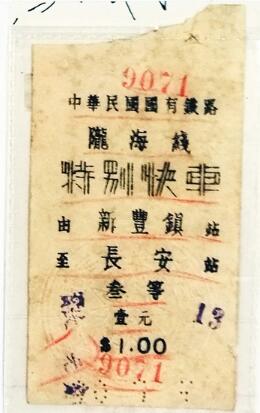 9071
中華民國國有鐵路
隴海綫
特别快車
由 新豐鎮 站
至 長安 站
叁等
壹元
13
$1.00
9071